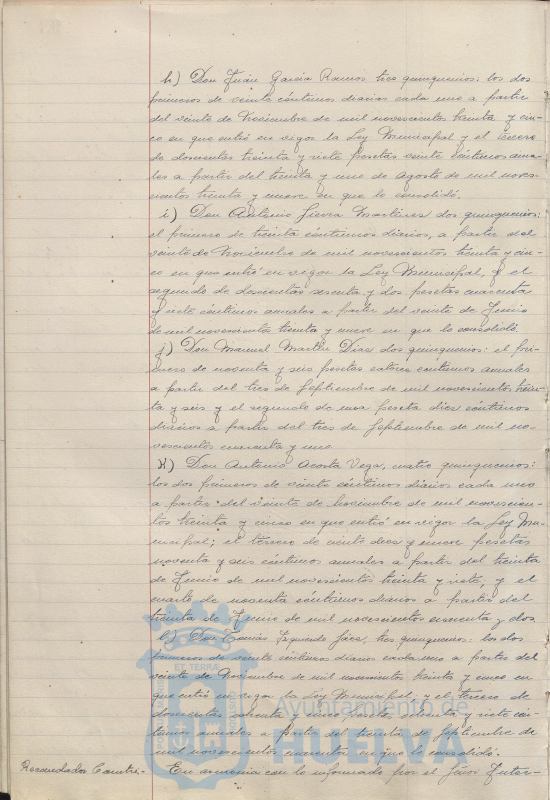 h) Don Juan García Ramos tres quinquenios: los dos
primeros de veinte céntimos diarios cada uno a partir
del veinte de Noviembre de mil novecientos treinta y cin-
co en que entró en vigor la Ley Municipal y el tercero
de doscientas treinta y siete pesetas veinte céntimos anua-
les a partir del treinta y uno de Agosto de mil nove-
cientos treinta y nueve en que lo consolidó.
i) Don Antonio Sierra Martínez dos quinquenios:
el primero de treinta céntimos diarios, a partir del
veinte de Noviembre de mil novecientos treinta y cin-
co en que entró en vigor la Ley Municipal, y el
segundo de doscientas sesenta y dos pesetas cuarenta
y siete céntimos anuales a partir del veinte de Junio
de mil novecientos treinta y nueve en que lo consolidó
j) Don Manuel Martín Díaz dos quinquenios: el pri-
mero de noventa y seis pesetas catorce céntimos anuales
a partir del tres de Septiembre de mil novecientos trein-
ta y seis y el segundo de una peseta diez céntimos
diarios a partir del tres de Septiembre de mil no-
vecientos cuarenta y uno
K) Don Antonio Acosta Vega, cuatro quinquenios:
los dos primeros de veinte céntimos diarios cada uno
a partir del veinte de Noviembre de mil novecien-
tos treinta y cinco en que entró en vigor la Ley Mu-
nicipal; el tercero de ciento doce y nueve pesetas
noventa y seis céntimos anuales a partir del treinta
de Junio de mil novecientos treinta y siete, y el
cuarto de noventa céntimos diarios a partir del
treinta de Junio de mil novecientos cuarenta y dos
l) Don Tomás Izquierdo Sáez, tres quinquenios: los dos
primeros de veinte céntimos diarios cada uno a partir del
veinte de Noviembre de mil novecientos treinta y cinco en
que entró en vigor la Ley Municipal; y el tercero de
doscientas setenta y cinco pesetas setenta y siete cén-
timos anuales a partir del treinta de Septiembre de
mil novecientos cuarenta en que lo consolidó.
En armonía con lo informado por el Señor Inter-
ET TERRA
Ayuntamiento de
HUELVA